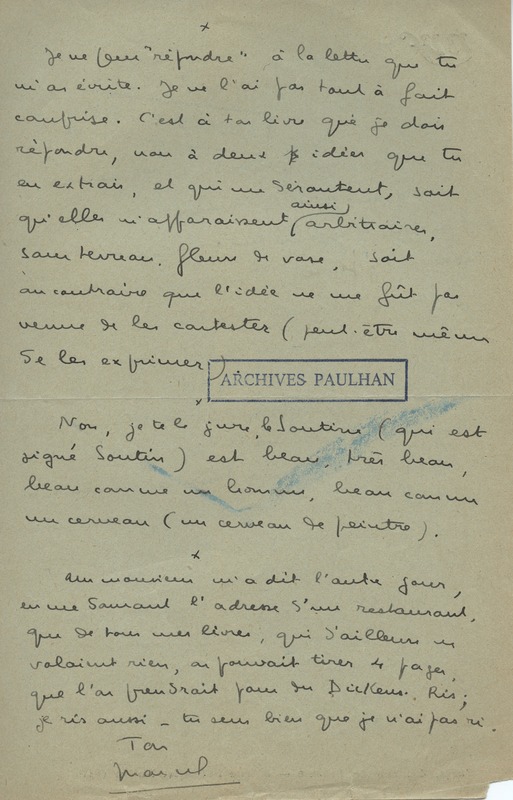 x
Je ne peux "répondre" à la lettre que tu
m'as écrite. Je ne l'ai pas tout à fait
comprise. C'est à ton livre que je dois
répondre, non à deux idées que tu
en extrais, et qui me déroutent, soit
qu'elles m'apparaissent ainsi arbitraires,
sans terreau, fleurs de vase, soit
au contraire que l'idée ne me fût pas
venue de les contester (peut-être même
de les exprimer).
ARCHIVES PAULHAN
x
Non, je te le jure, le Soutine (qui est
signé Soutin) est beau, très beau,
beau comme un homme, beau comme
un cerveau (un cerveau de peintre).
x
Un monsieur m'a dit l'autre jour,
en me donnant l'adresse d'un restaurant,
que de tous mes livres, qui d'ailleurs ne
valaient rien, on pouvait tirer 4 pages,
que l'on prendrait pour du Dickens. Ris;
je ris aussi - tu sens bien que je n'ai pas ri.
Ton
Marcel